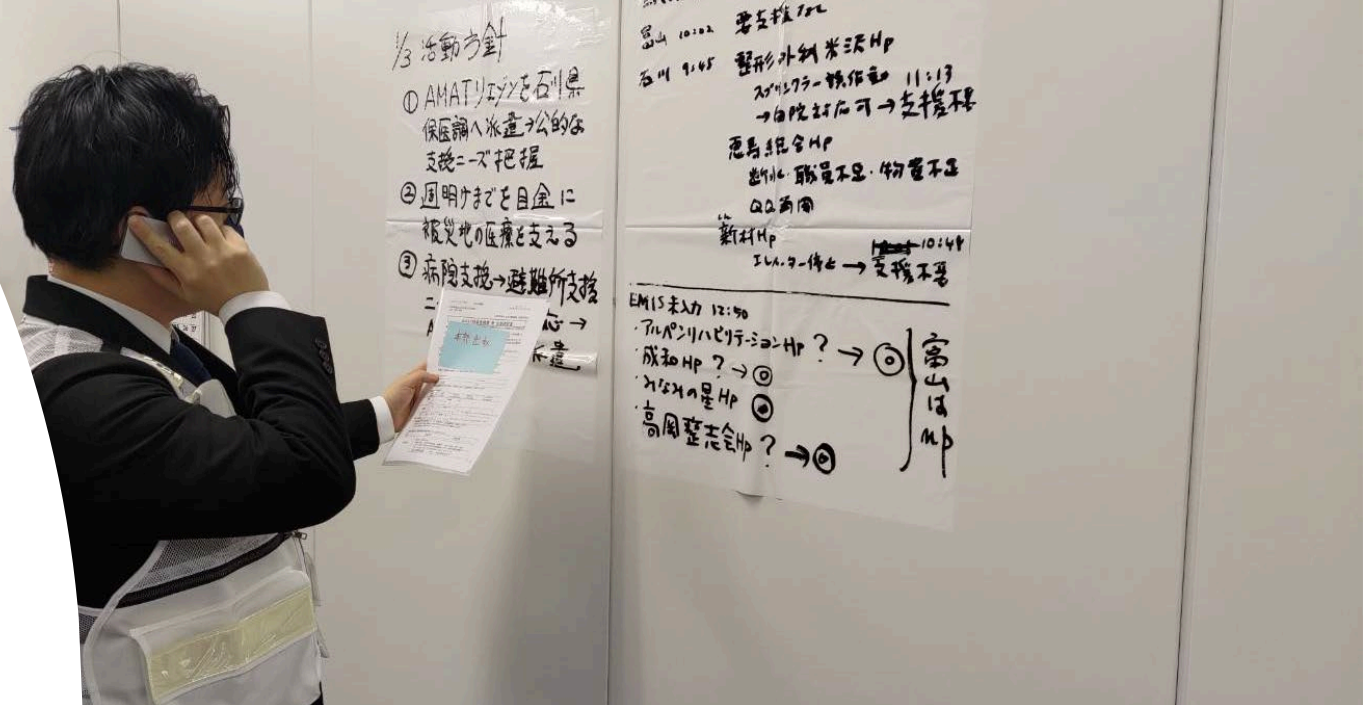 1/3 活動方針
① AMATリエゾンを石川県
保医調へ派遣→公的な
支援ニーズ把握
② 週明けまでを目途に
被災地の医療を支える
③ 病院支援→避難所支援
応→
派遣
富山 10:02 要支援なし
石川 9:45 整形外科米沢Hp
スプリンクラー誤作動 11:13
→自院対応可→支援不要
恵寿総合Hp
断水・職員不足・物資不足
QQ車両
新村Hp
10:49
エレベーター停止→支援不要
EMIS未入力 12:50
・アルペンリハビリテーションHp?→◎
・成和Hp?→◎
・みなみの星Hp ◎
・高岡整志会Hp?→◎
富山はnp